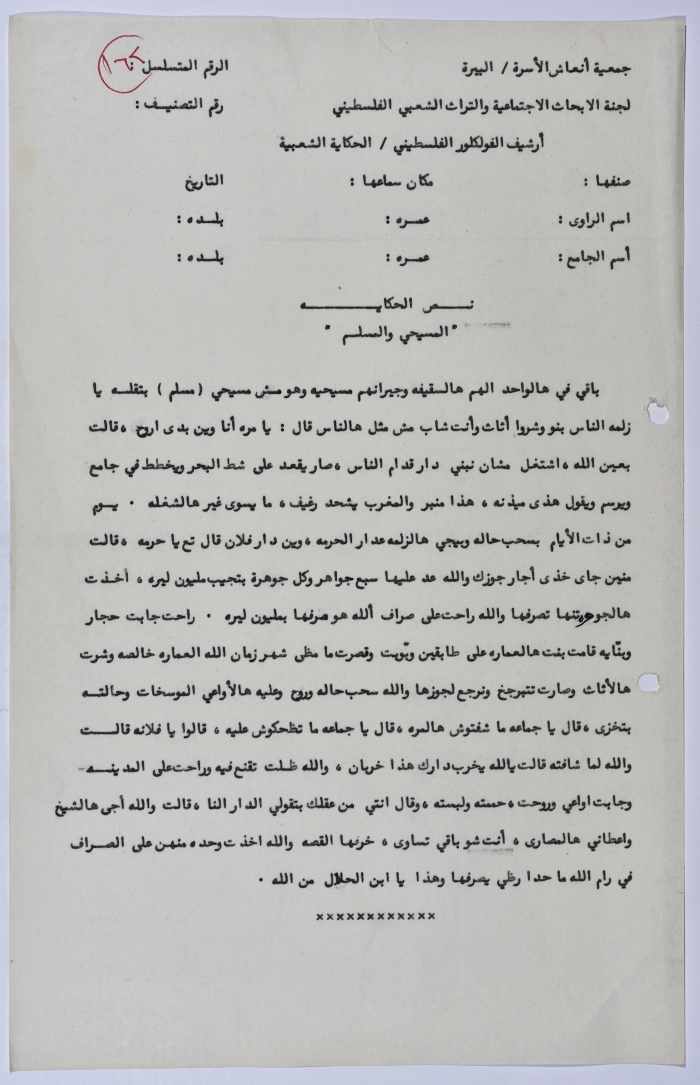 جمعية أنعاش الأسرة / البيرة الرقم المتسلسل
لجنة الابحاث الاجتماعية والتراث الشعبي الفلسطيني رقم التصنيف :
أرشيف الفولكلور الفلسطيني / الحكاية الشعبية
صنفها : مكان سماعها : التاريخ
اسم الراوى : عمره : بلده :
أسم الجامع : عمره : بلده :
نص الحكايه
" المسيحي والمسلم "
باقي في هالواحد الهم هالسقيفه وجيرانهم مسيحيه وهو مش مسيحي ( مسلم ) بتقله يا
زلمه الناس بنو وشروا أثاث وأنت شاب مش مثل هالناس قال : يا مره أنا وين بدى اروح ، قالت
بعين الله ، اشتغل مشان نبني دار قدام الناس ، صار يقعد على شط البحر ويخطط في جامع
ويرسم ويقول هذى ميذنه ، هذا منبر والمغرب يشحد رغيف ، ما يسوى غير هالشغله . يوم
من ذات الأيام بسحب حاله وبيجي هالزلمه عدار الحرمه ، وين دار فلان قال تع يا حرمه ، قالت
منين جاى خذى أجار جوزك والله عد عليها سبع جواهر وكل جوهرة بتجيب مليون ليره ، أخذت
تصرفها والله راحت على صراف ألله هو صرفها بمليون ليره . راحت جابت حجار
وبنّايه قامت بنت هالعماره على طابقين وبّويت وقصرت ما مظى شهر زمان الله العماره خالصه وشرت
هالأثاث وصارت تتبرجخ ونرجع لجوزها والله سحب حاله وروح وعليه هالأواعي الموسخات وحالته
بتخزى ، قال يا جماعه ما شفتوش هالمره ، قال يا جماعه ما تظحكوش عليه ، قالوا يا فلانه قالت
والله لما شافته قالت يالله يخرب دارك هذا خربان ، والله ظلت تقنع فيه وراحت على المدينه
وجابت اواعي وروحت ، حممته ولبسته ، وقال انتي من عقلك بتقولي الدار النا ، قالت والله أجى هالشيخ
واعطاني هالمصارى ، أنت شو باقي تساوى ، خرفها القصه والله اخذت وحده منهن على الصراف
في رام الله ما حدا رظي يصرفها وهذا يا ابن الحلال من الله .
××××××××××××